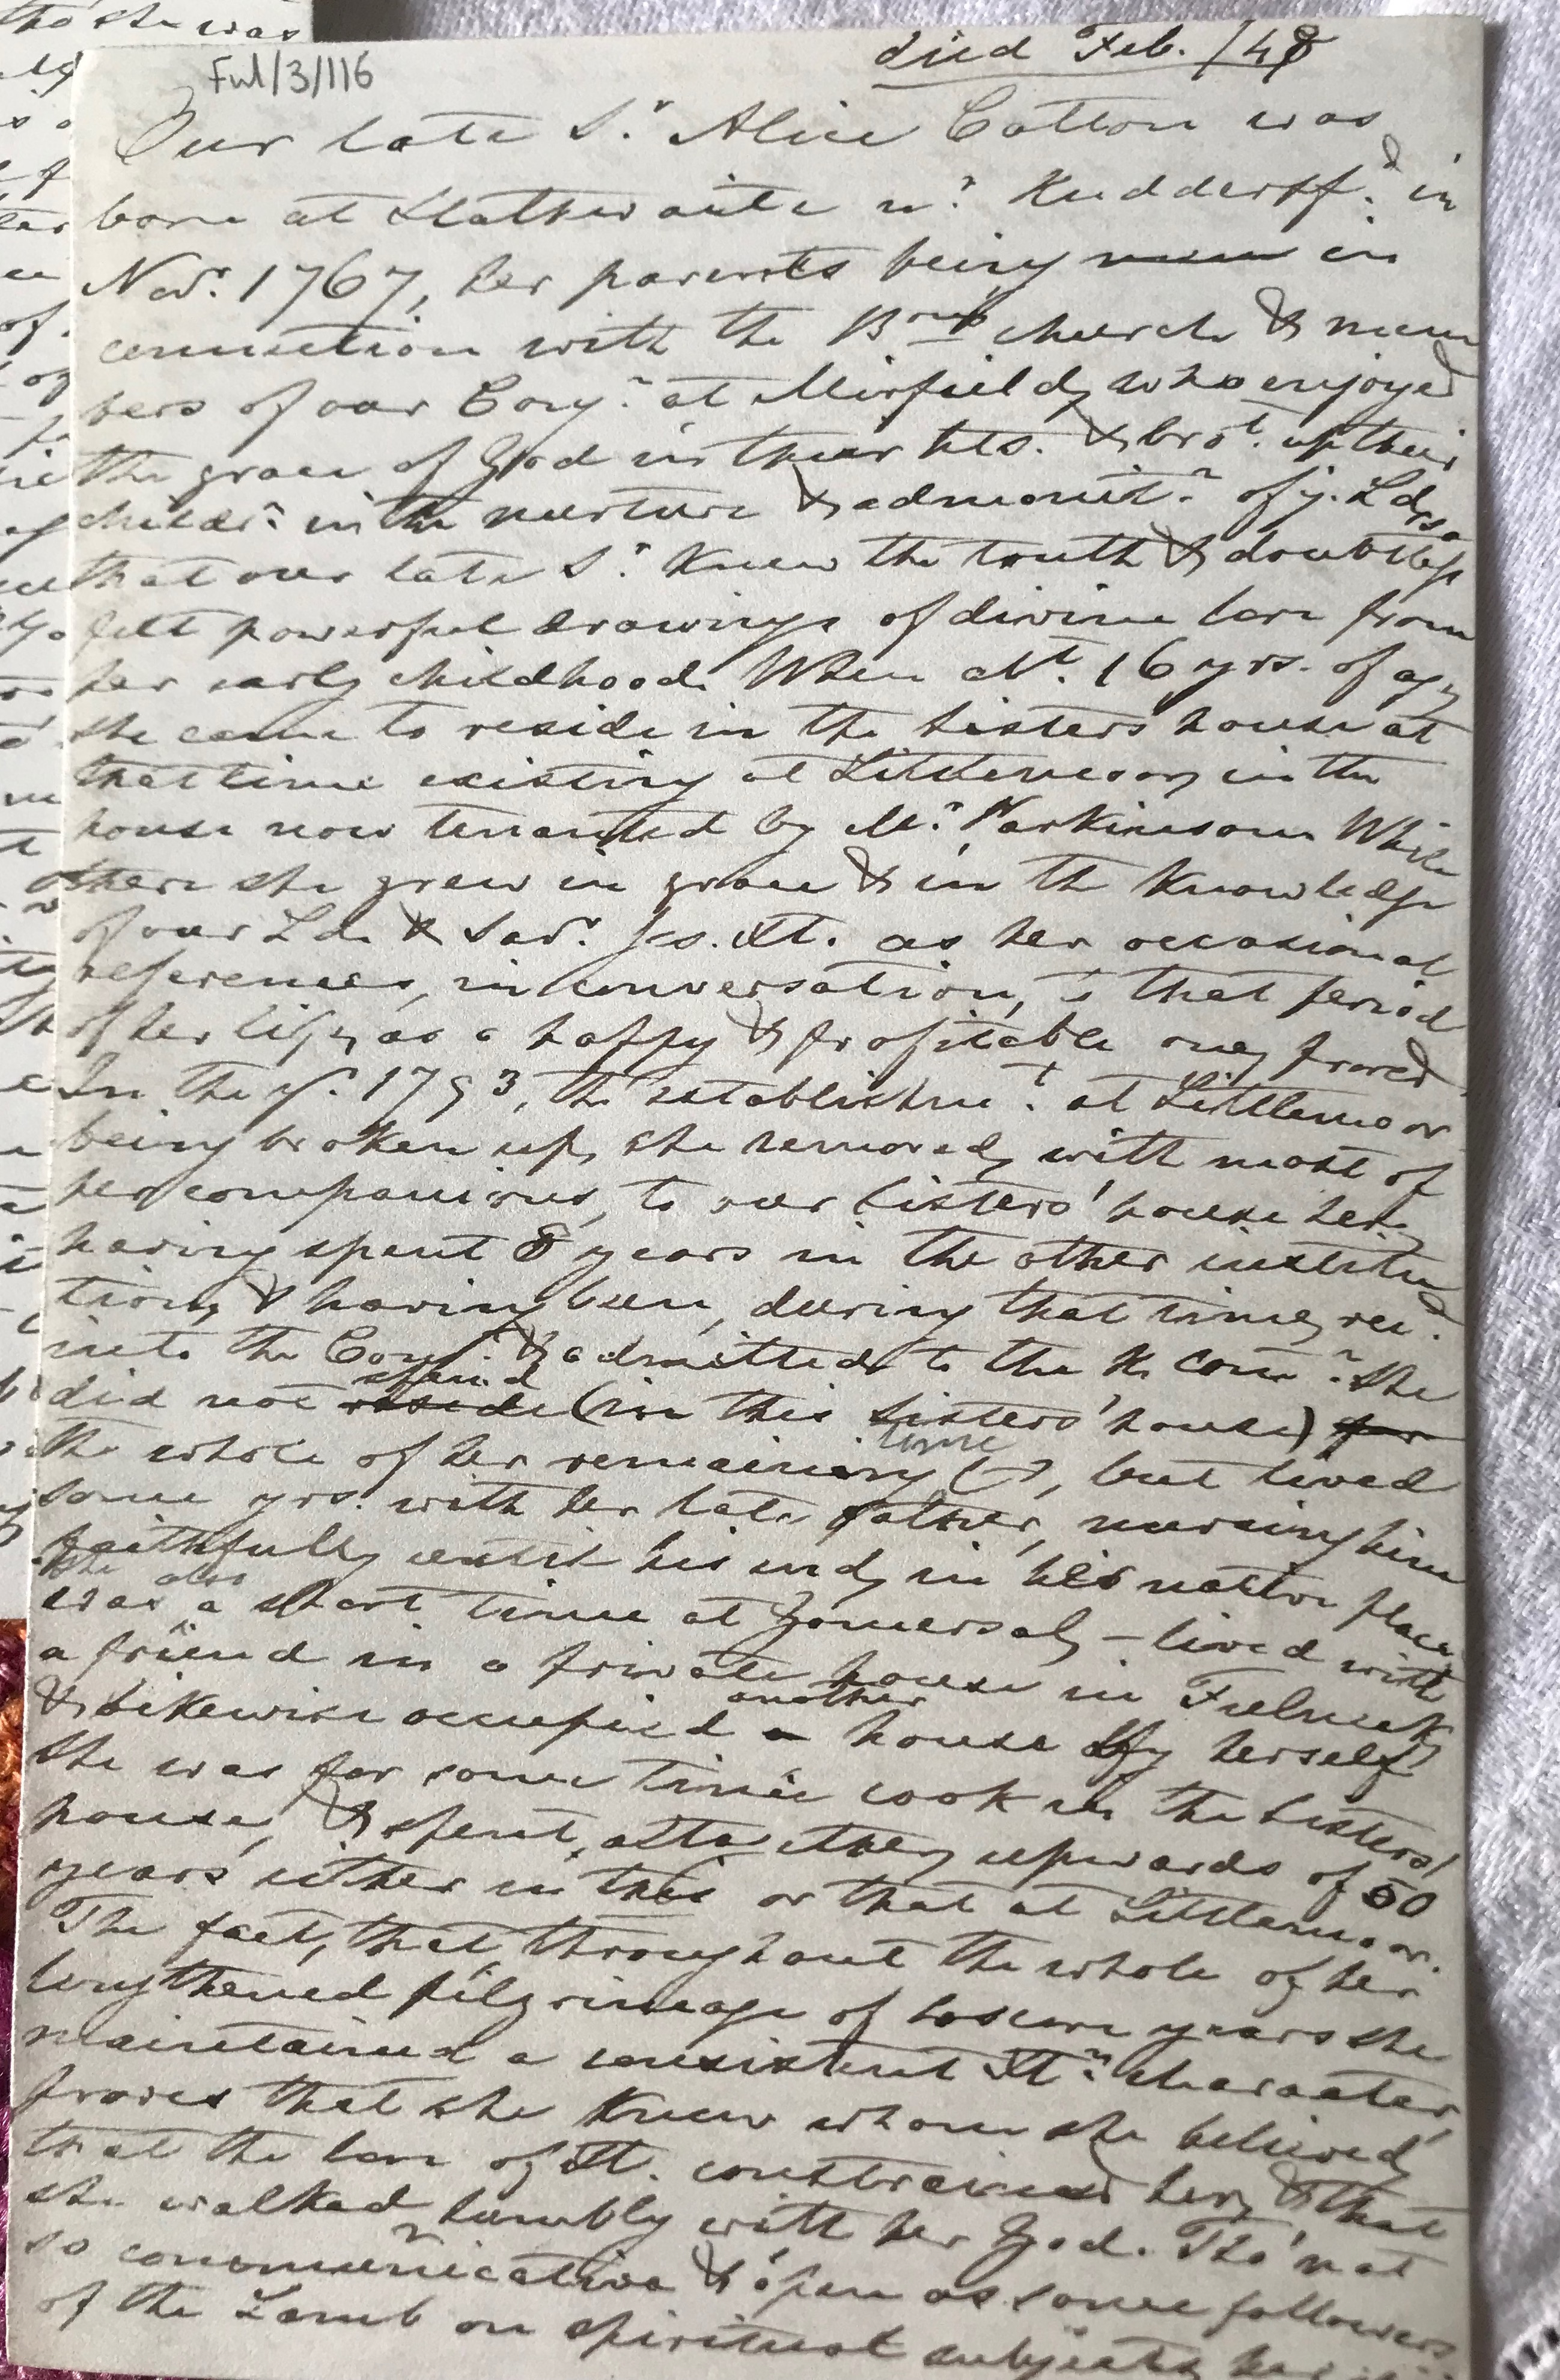 Ful/3/116
died Feb. /48
Our late Sr. Alice Cotton was
born at Slathwaite nr. Huddersfd. in
Novr. 1767, her parents being in
connection with the Brns church & mem
bers of our Congn. at Mirfield, who enjoyed
the grace of God in their hts. & brot. up their
childrn. in the nurture & admonitn. of ye. Ld, so
that our late Sr. knew the truth & doubtless
felt powerful drawings of divine love from
her early childhood. When abt. 16 yrs. of age,
she came to reside in the Sisters house at
that time existing at Littlemoor, in the
house now tenanted by Mr. Parkinson. While
there she grew in grace & in the knowledge
of our Ld. & Savr. Js. Xt. as her occasional
references, in conversation, to that period
of her life, as a happy & profitable one, proved.
In the yr. 1793, the establishmt. at Littlemoor
being broken up, she removed, with most of
her companions, to our Sisters' house here,
having spent 8 years in the other institu
tion, & having been, during that time, recd.
into the Congn. & admitted to the H. Comn. She
did not reside spend (in this Sisters' house) for
the whole of her remaining time (-), but lived
some yrs. with her late father, nursing him
faithfully until his end, in his native place.
She was also a short time at Gomersal, - lived with
a friend in a private house in Fulneck,
& likewise occupied a another house by herself.
She was for some time cook in the Sisters'
house, & spent, altogether, upwards of 50
years either in this or that at Littlemoor.
The fact, that, throughout the whole of her
lengthened pilgrimage of years she
maintained a consistent Xtn. character,
proves that she knew whom she believed,
that the love of Xt. constrained her, & that
she walked humbly with her God. Tho' not
so communicative & open as some followers
of the Lamb on spiritual subjects, her